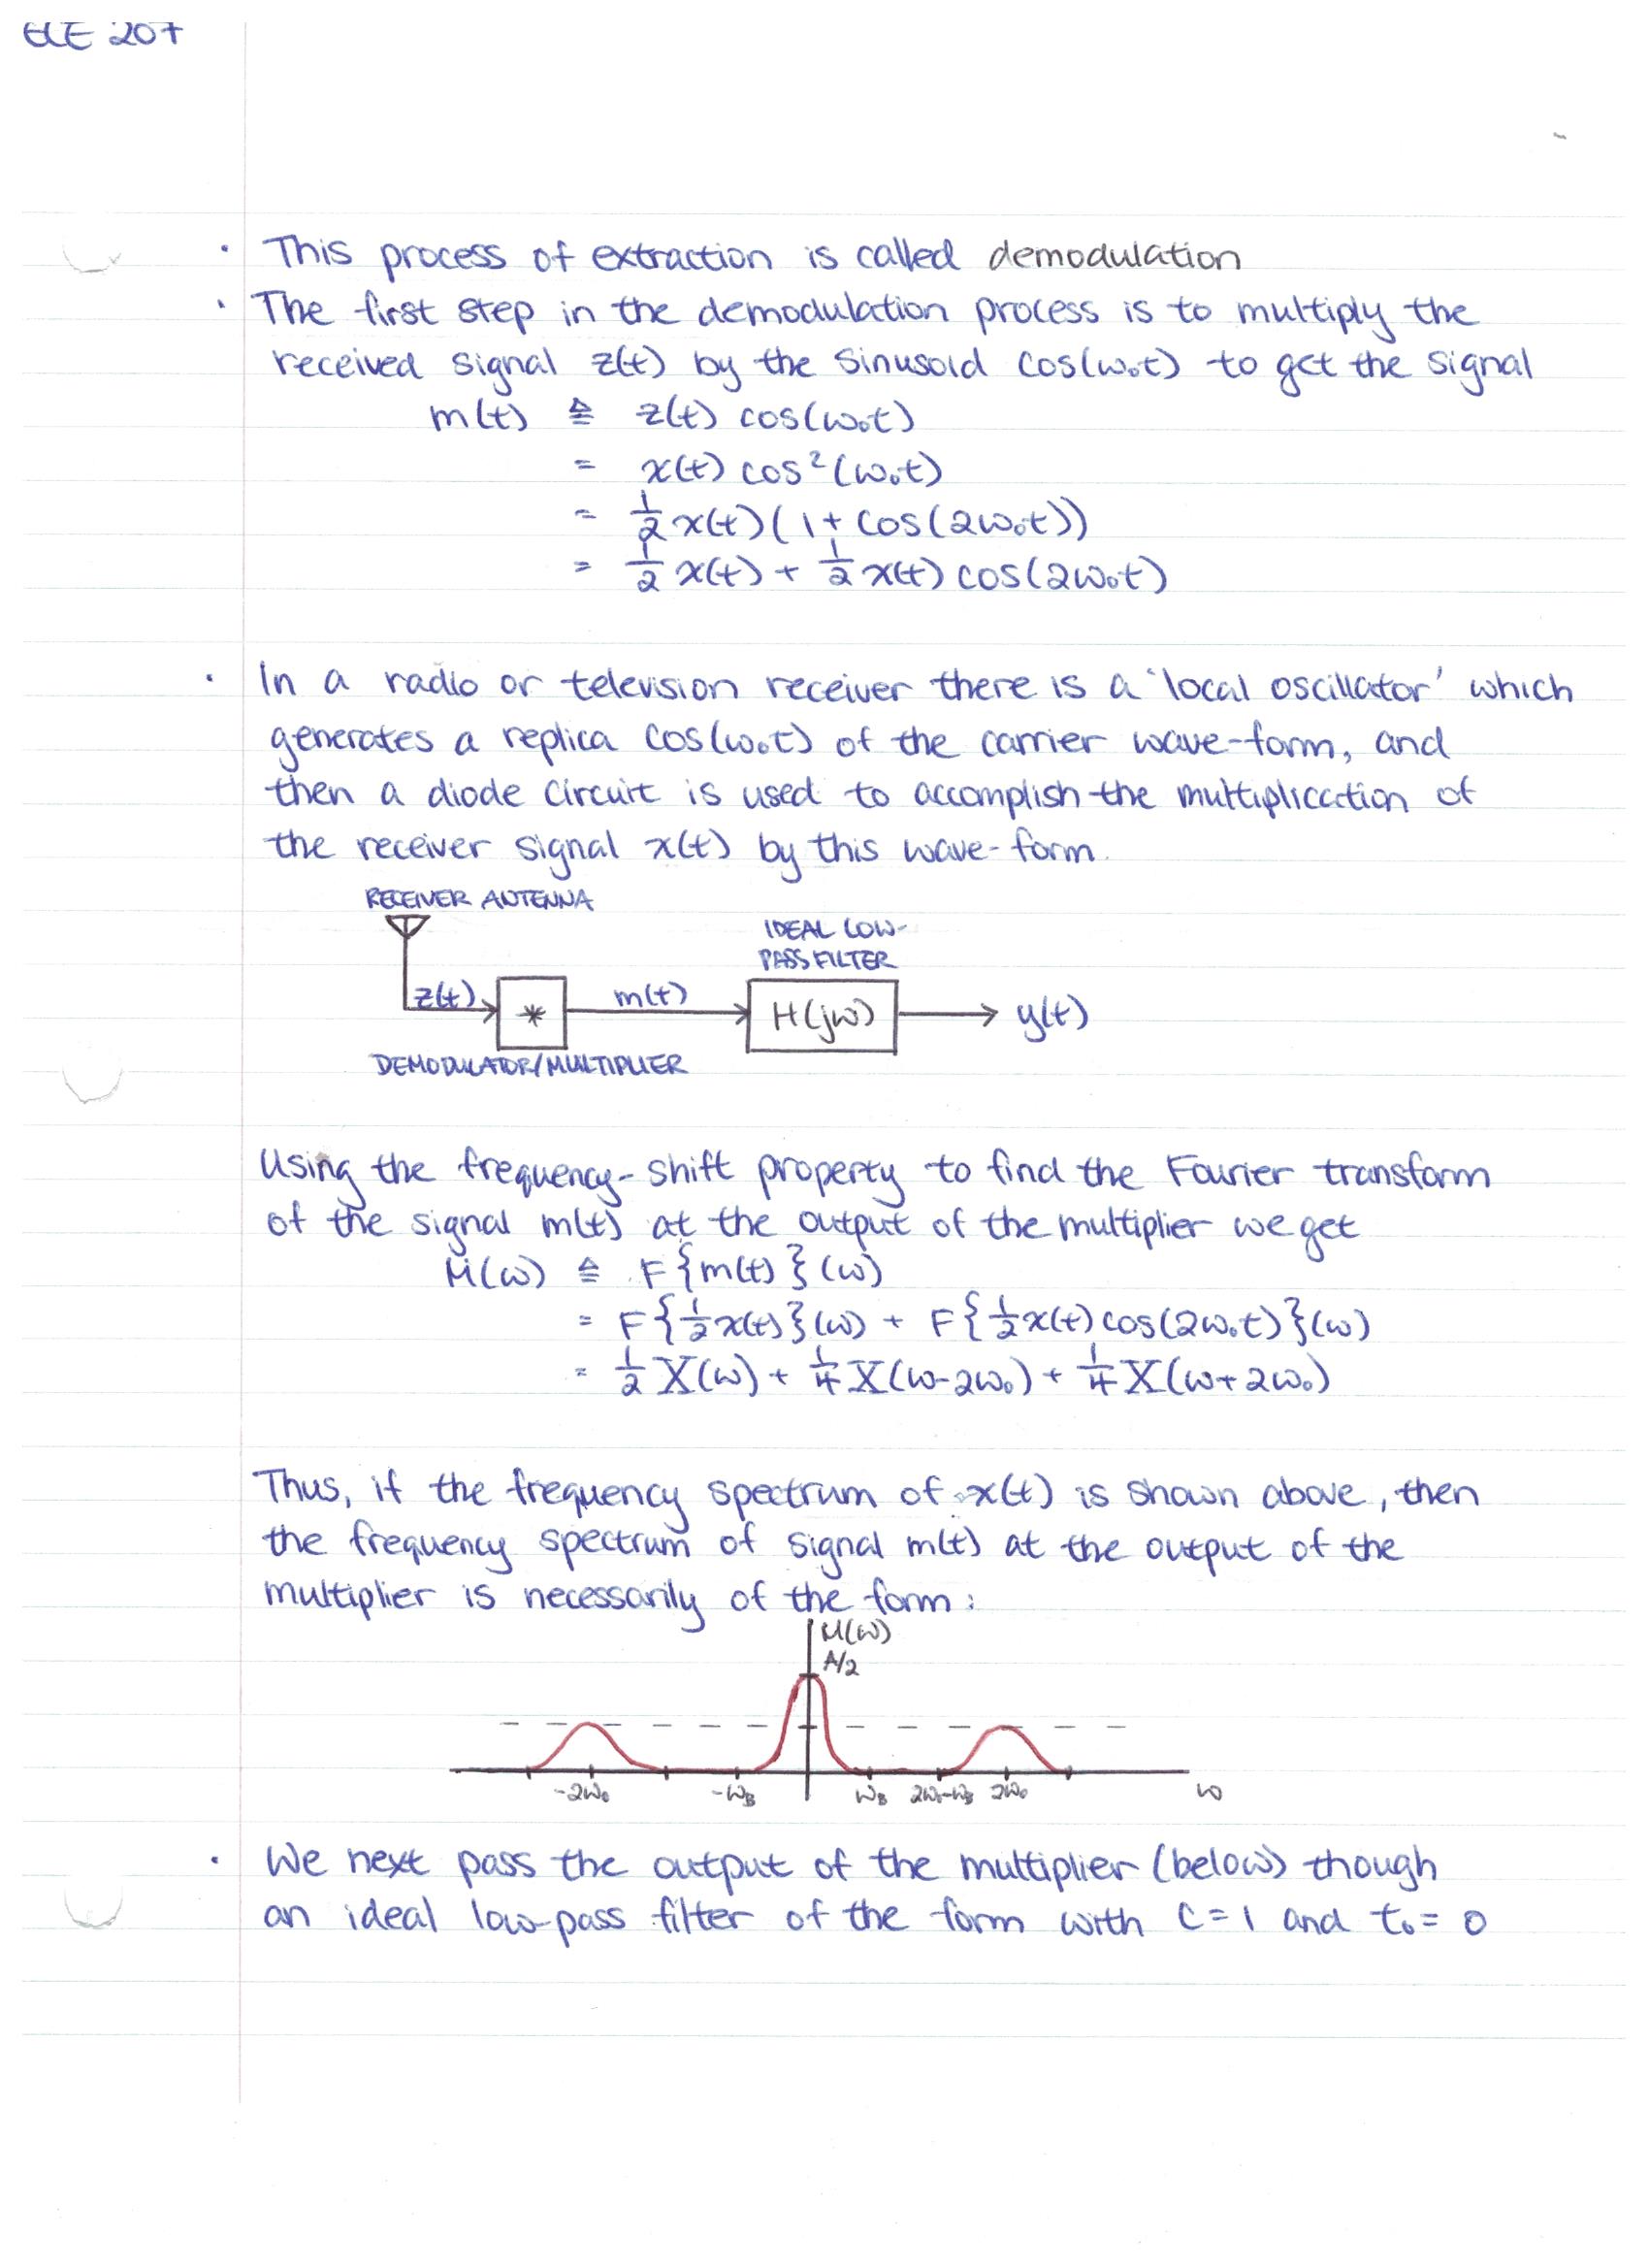 ECE 207
· This process of extraction is called demodulation
· The first step in the demodulation process is to multiply the
received signal z(t) by the sinusoid cos(ω₀t) to get the signal
m(t) ≙ z(t) cos(ω₀t)
= x(t) cos²(ω₀t)
= 1/2 x(t)(1 + cos(2ω₀t))
= 1/2 x(t) + 1/2 x(t) cos(2ω₀t)
· In a radio or television receiver there is a 'local oscillator' which
generates a replica cos(ω₀t) of the carrier wave-form, and
then a diode circuit is used to accomplish the multiplication of
the receiver signal x(t) by this wave-form.
RECEIVER ANTENNA
IDEAL LOW-
PASS FILTER
z(t) * m(t) H(jω) y(t)
DEMODULATOR/MULTIPLIER
Using the frequency-shift property to find the Fourier transform
of the signal m(t) at the output of the multiplier we get
M(ω) ≙ F{m(t)}(ω)
= F{1/2 x(t)}(ω) + F{1/2 x(t) cos(2ω₀t)}(ω)
= 1/2 X(ω) + 1/4 X(ω-2ω₀) + 1/4 X(ω+2ω₀)
Thus, if the frequency spectrum of x(t) is shown above, then
the frequency spectrum of signal m(t) at the output of the
multiplier is necessarily of the form:
M(ω)
A/2
-2ω₀ -ω_B ω_B 2ω₀-ω_B 2ω₀ ω
· We next pass the output of the multiplier (below) though
an ideal low-pass filter of the form with C = 1 and t₀ = 0